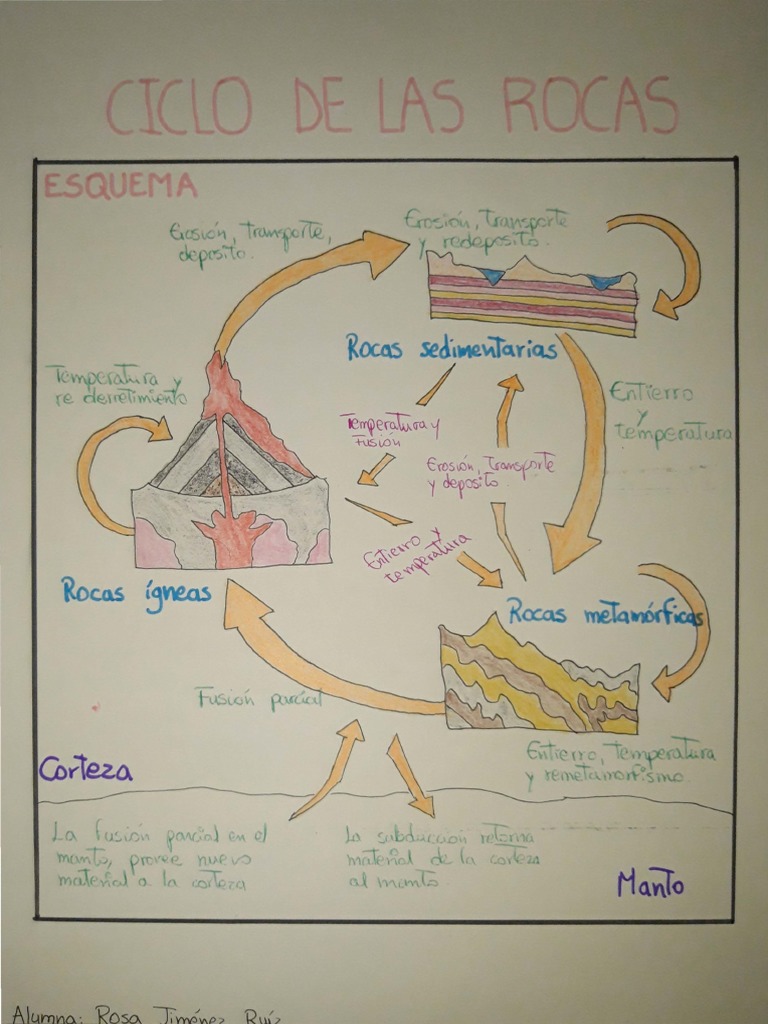 CICLO DE LAS ROCAS
ESQUEMA
Erosión, transporte,
deposito.
Erosión, transporte
y redeposito.
Rocas sedimentarias
Temperatura y
re derretimiento
Entierro
y
temperatura
Temperatura y
Fusión
Erosión, transporte
y deposito.
Entierro y
temperatura
Rocas ígneas
Rocas metamórficas
Fusión parcial
Entierro, temperatura
y remetamorfismo.
Corteza
La fusión parcial en el
manto, provee nuevo
material a la corteza
La subducción retorna
material de la corteza
al manto.
Manto
Alumna: Rosa Jiménez Ruiz